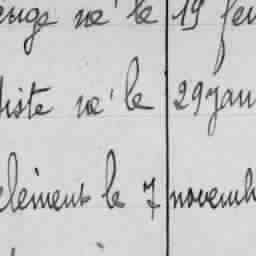 né le 19 fev
iste né le 29 jan
clément le 7 novemb